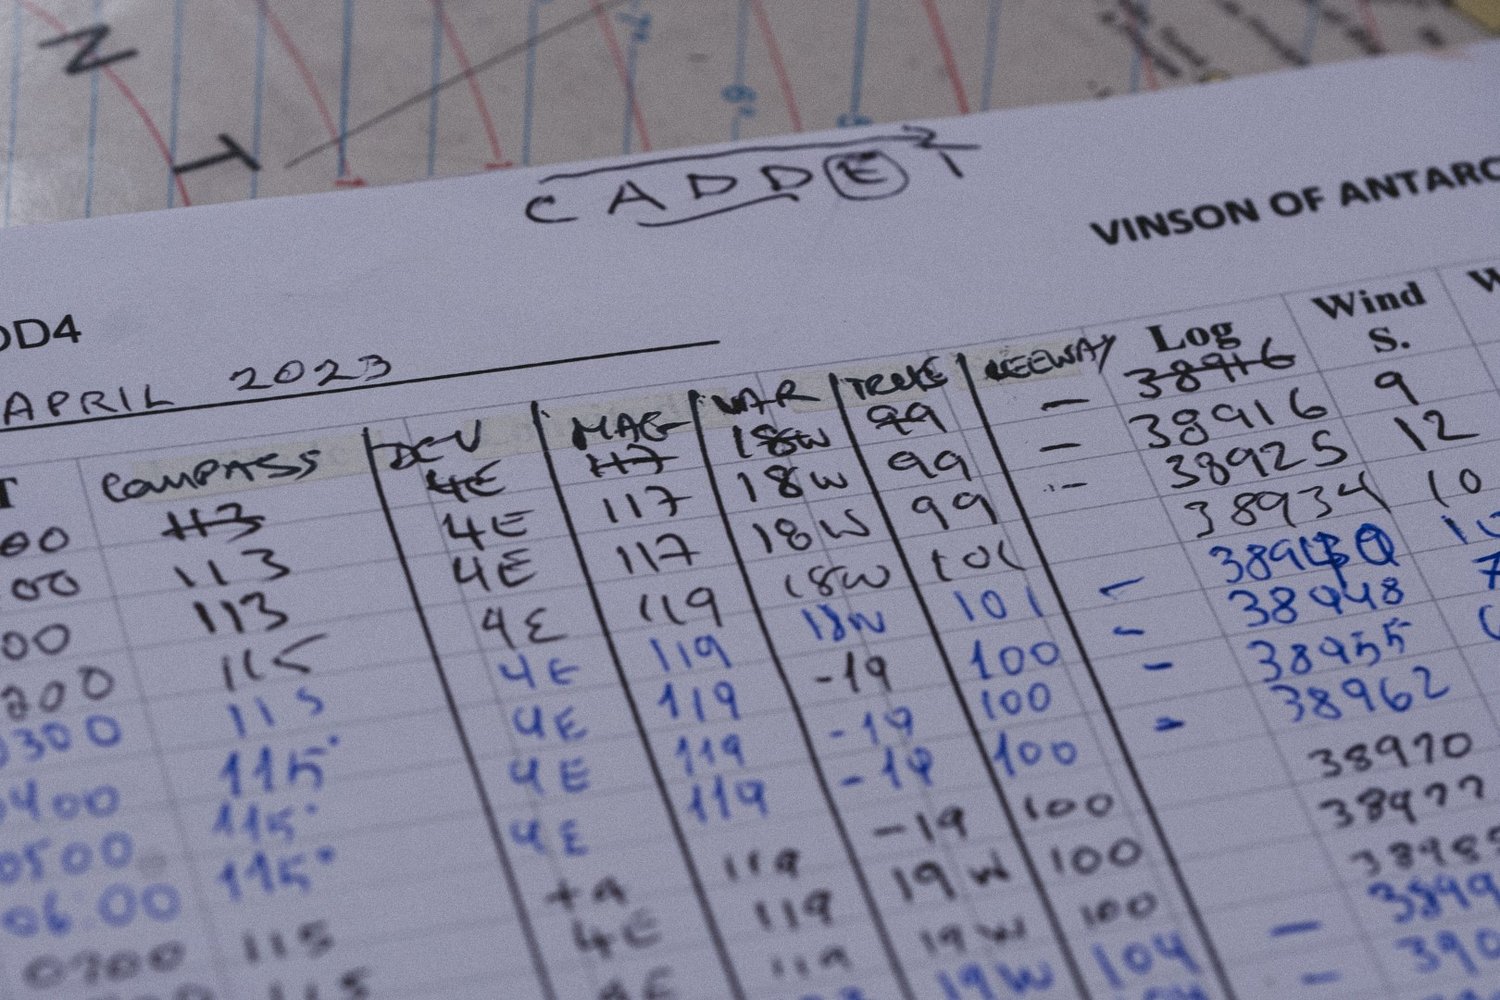 N
T
CADDET
VINSON OF ANTARC
DD4
APRIL 2023
T COMPASS DEV MAG VAR TRUE LEEWAY Log Wind S. W
00 113 4E 117 18W 99 - 38916
00 113 4E 117 18W 99 - 38916 9
00 113 4E 117 18W 99 - 38925 12
200 115 4E 119 18W 101 38934 10
0300 115 4E 119 18W 101 - 10
0400 115° 4E 119 -19 100 - 38948 7
0500 115° 4E 119 -19 100 - 38955
06.00 115° 4E 119 -19 100 - 38962
0700 115 +4 119 -19 100 38970
115 4E 119 19W 100 38977
4E 119 19W 100 38985
19W 104 - 3899
- 390